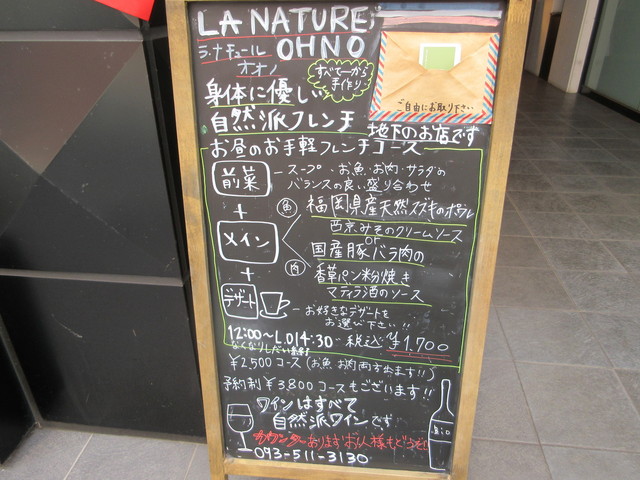 LA NATURE
OHNO
ラ・ナチュール
オオノ
すべて一から
手作り
ご自由にお取り下さい
身体に優しい
自然派フレンチ
地下のお店です
お昼のお手軽フレンチコース
前菜
スープ、お魚・お肉・サラダの
バランスの良い盛り合わせ
+
メイン
魚
福岡県産天然スズキのポワレ
西京みそのクリームソース
or
肉
国産豚バラ肉の
香草パン粉焼き
マディラ酒のソース
+
デザート
お好きなデザートを
お選び下さい!!
12:00〜L.O14:30 税込 ¥1,700
なくなりしだい
¥2,500コース(お魚お肉両方出ます!!)
予約制¥3,800コースもございます!!
ワインはすべて
自然派ワインです
Bio
カウンターありますお1人様もどうぞ
093-511-3130